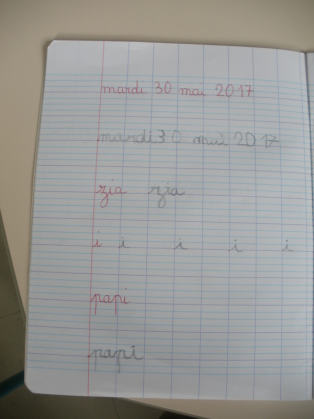 mardi 30 mai 2017
mardi 30 mai 2017
zia zia
i i i i i
papi
papi